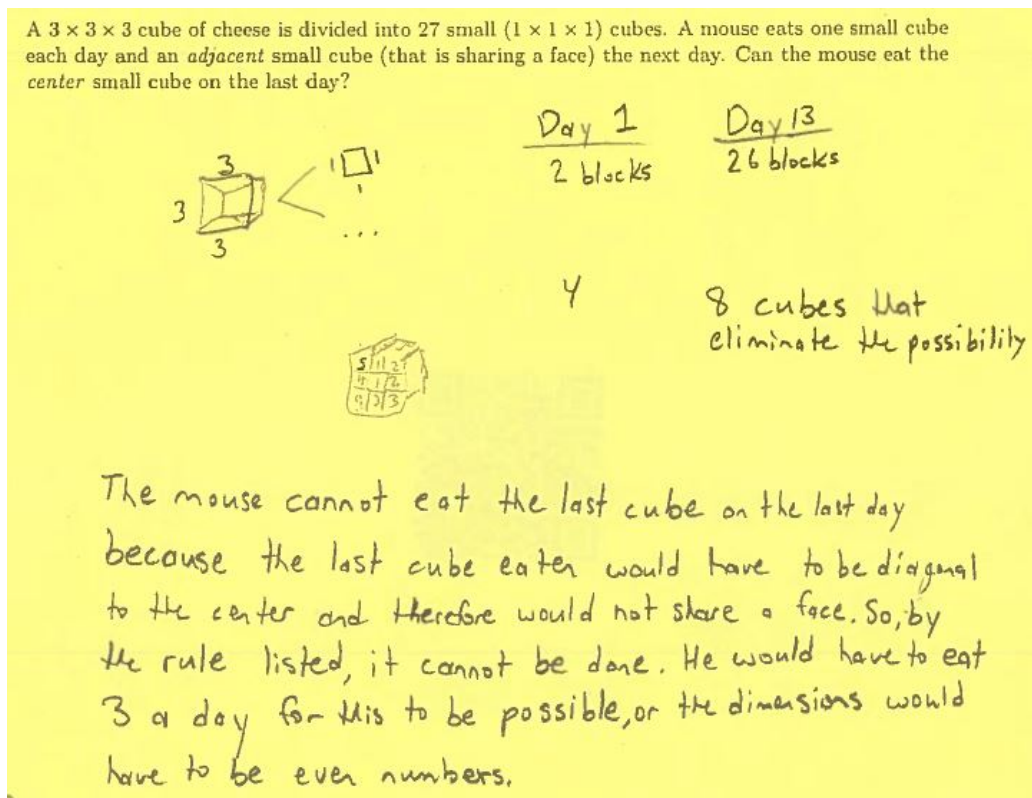 A 3 × 3 × 3 cube of cheese is divided into 27 small (1 × 1 × 1) cubes. A mouse eats one small cube
each day and an adjacent small cube (that is sharing a face) the next day. Can the mouse eat the
center small cube on the last day?
Day 1
2 blocks
Day 13
26 blocks
3
3
3
1 1
1
...
4
8 cubes that
eliminate the possibility
5 1 2
4 1 2
3
The mouse cannot eat the last cube on the last day
because the last cube eaten would have to be diagonal
to the center and therefore would not share a face. So, by
the rule listed, it cannot be done. He would have to eat
3 a day for this to be possible, or the dimensions would
have to be even numbers.